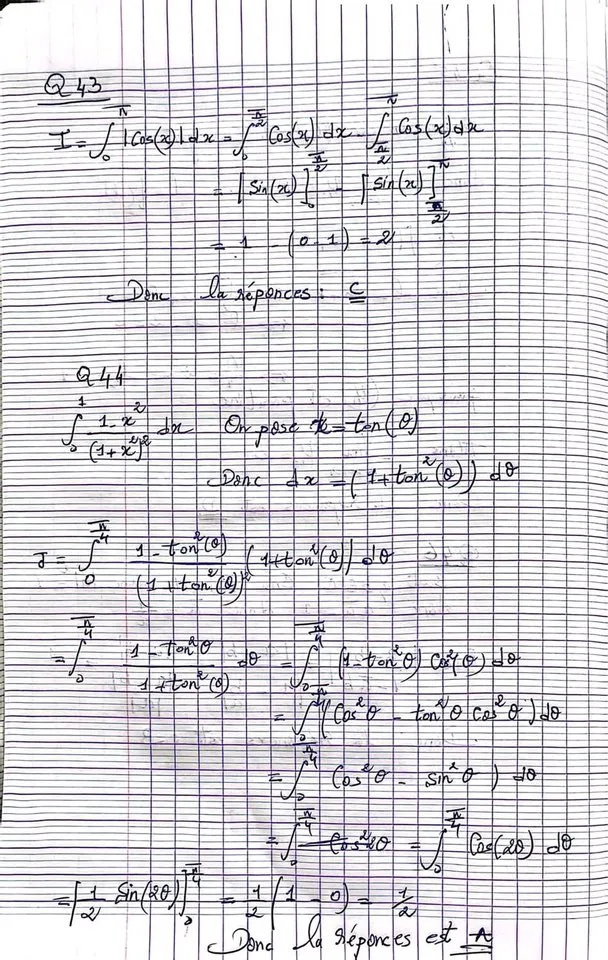 Q 43
I = ∫₀^π |Cos(x)| dx = ∫₀^{π/2} Cos(x) dx - ∫_{π/2}^π Cos(x) dx
= [Sin(x)]₀^{π/2} - [Sin(x)]_{π/2}^π
= 1 - (0 - 1) = 2
Donc la réponces : C
Q 44
∫₀¹ (1 - x²)/(1 + x²)² dx On pose x = tan(θ)
Donc dx = (1 + tan²(θ)) dθ
J = ∫₀^{π/4} (1 - tan²(θ))/(1 + tan²(θ))² (1 + tan²(θ)) dθ
= ∫₀^{π/4} (1 - tan²θ)/(1 + tan²(θ)) dθ = ∫₀^{π/4} (1 - tan²θ) Cos²(θ) dθ
= ∫₀^{π/4} (Cos²θ - tan²θ cos²θ) dθ
= ∫₀^{π/4} Cos²θ - sin²θ ) dθ
= ∫₀^{π/4} Cos²2θ = ∫₀^{π/4} Cos(2θ) dθ
= [1/2 Sin(2θ)]₀^{π/4} = 1/2 (1 - 0) = 1/2
Donc la réponces est A